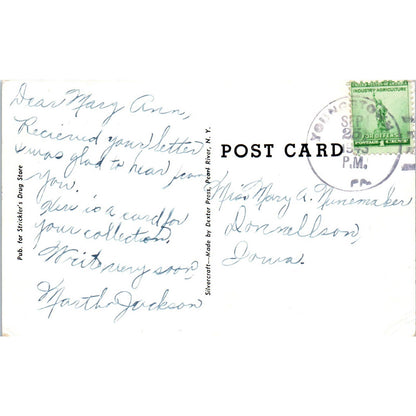 Dear Mary Ann,
Recieved your letter
was glad to hear from
you.
Here is a card for
your collection.
Write very soon,
Martha Jackson
Pub. for Strickler's Drug Store
Silvercraft—Made by Dexter Press, Pearl River, N. Y.
POST CARD
Miss Mary A. Nunemaker
Donnellson,
Iowa.
SEP
1943
P.M.
INDUSTRY AGRICULTURE
FOR DEFENSE
POSTAGE 1 CENT